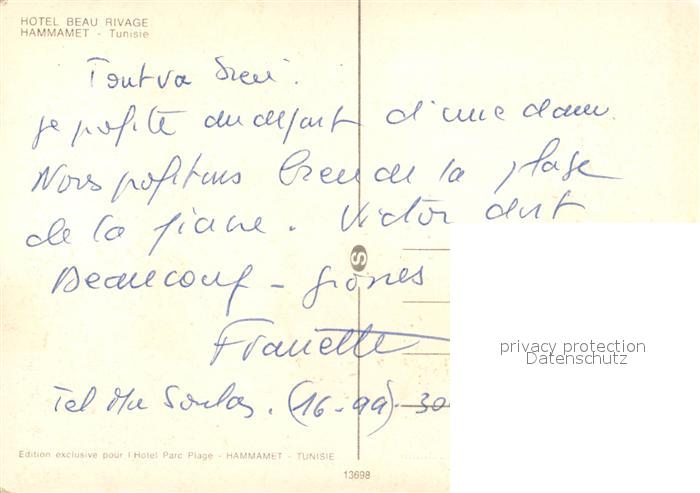 HOTEL BEAU RIVAGE
HAMMAMET - Tunisie
Tout va bien.
je profite du départ d'une dame.
Nous profitons bien de la plage
de la piscine. Victor dort
Beaucoup - grosses
Francette
Tel (16-99)-30
privacy protection
Datenschutz
Edition exclusive pour l'Hotel Parc Plage - HAMMAMET - TUNISIE
13698